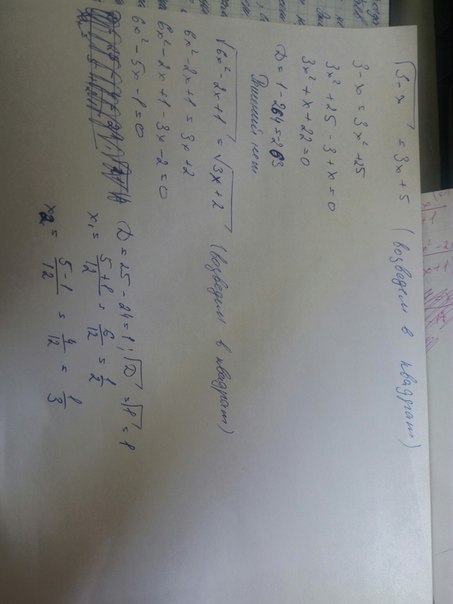 √3-x = 3x+5 (возведем в квадрат)
3-x = 3x²+25
3x²+25-3+x=0
3x²+x+22=0
D=1-264=263
Решений нет
√6x²-2x+1 = √3x+2 (возведем в квадрат)
6x²-2x+1 = 3x+2
6x²-2x+1-3x-2=0
6x²-5x-1=0
D=25-24=1; √D=√1=1
x₁= 5+1/12 = 6/12 = 1/2
x₂= 5-1/12 = 4/12 = 1/3